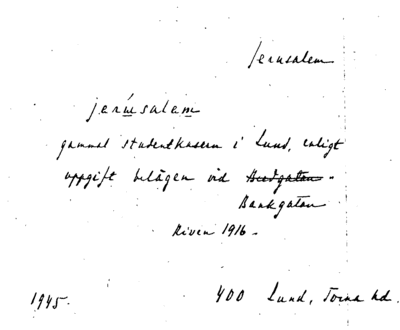 Jerusalem
jerúsalem
gammal studentkasern i Lund, enligt
uppgift belägen vid Bredgatan -
Bankgatan
Riven 1916 -
1945.
400 Lund, Torna hd.